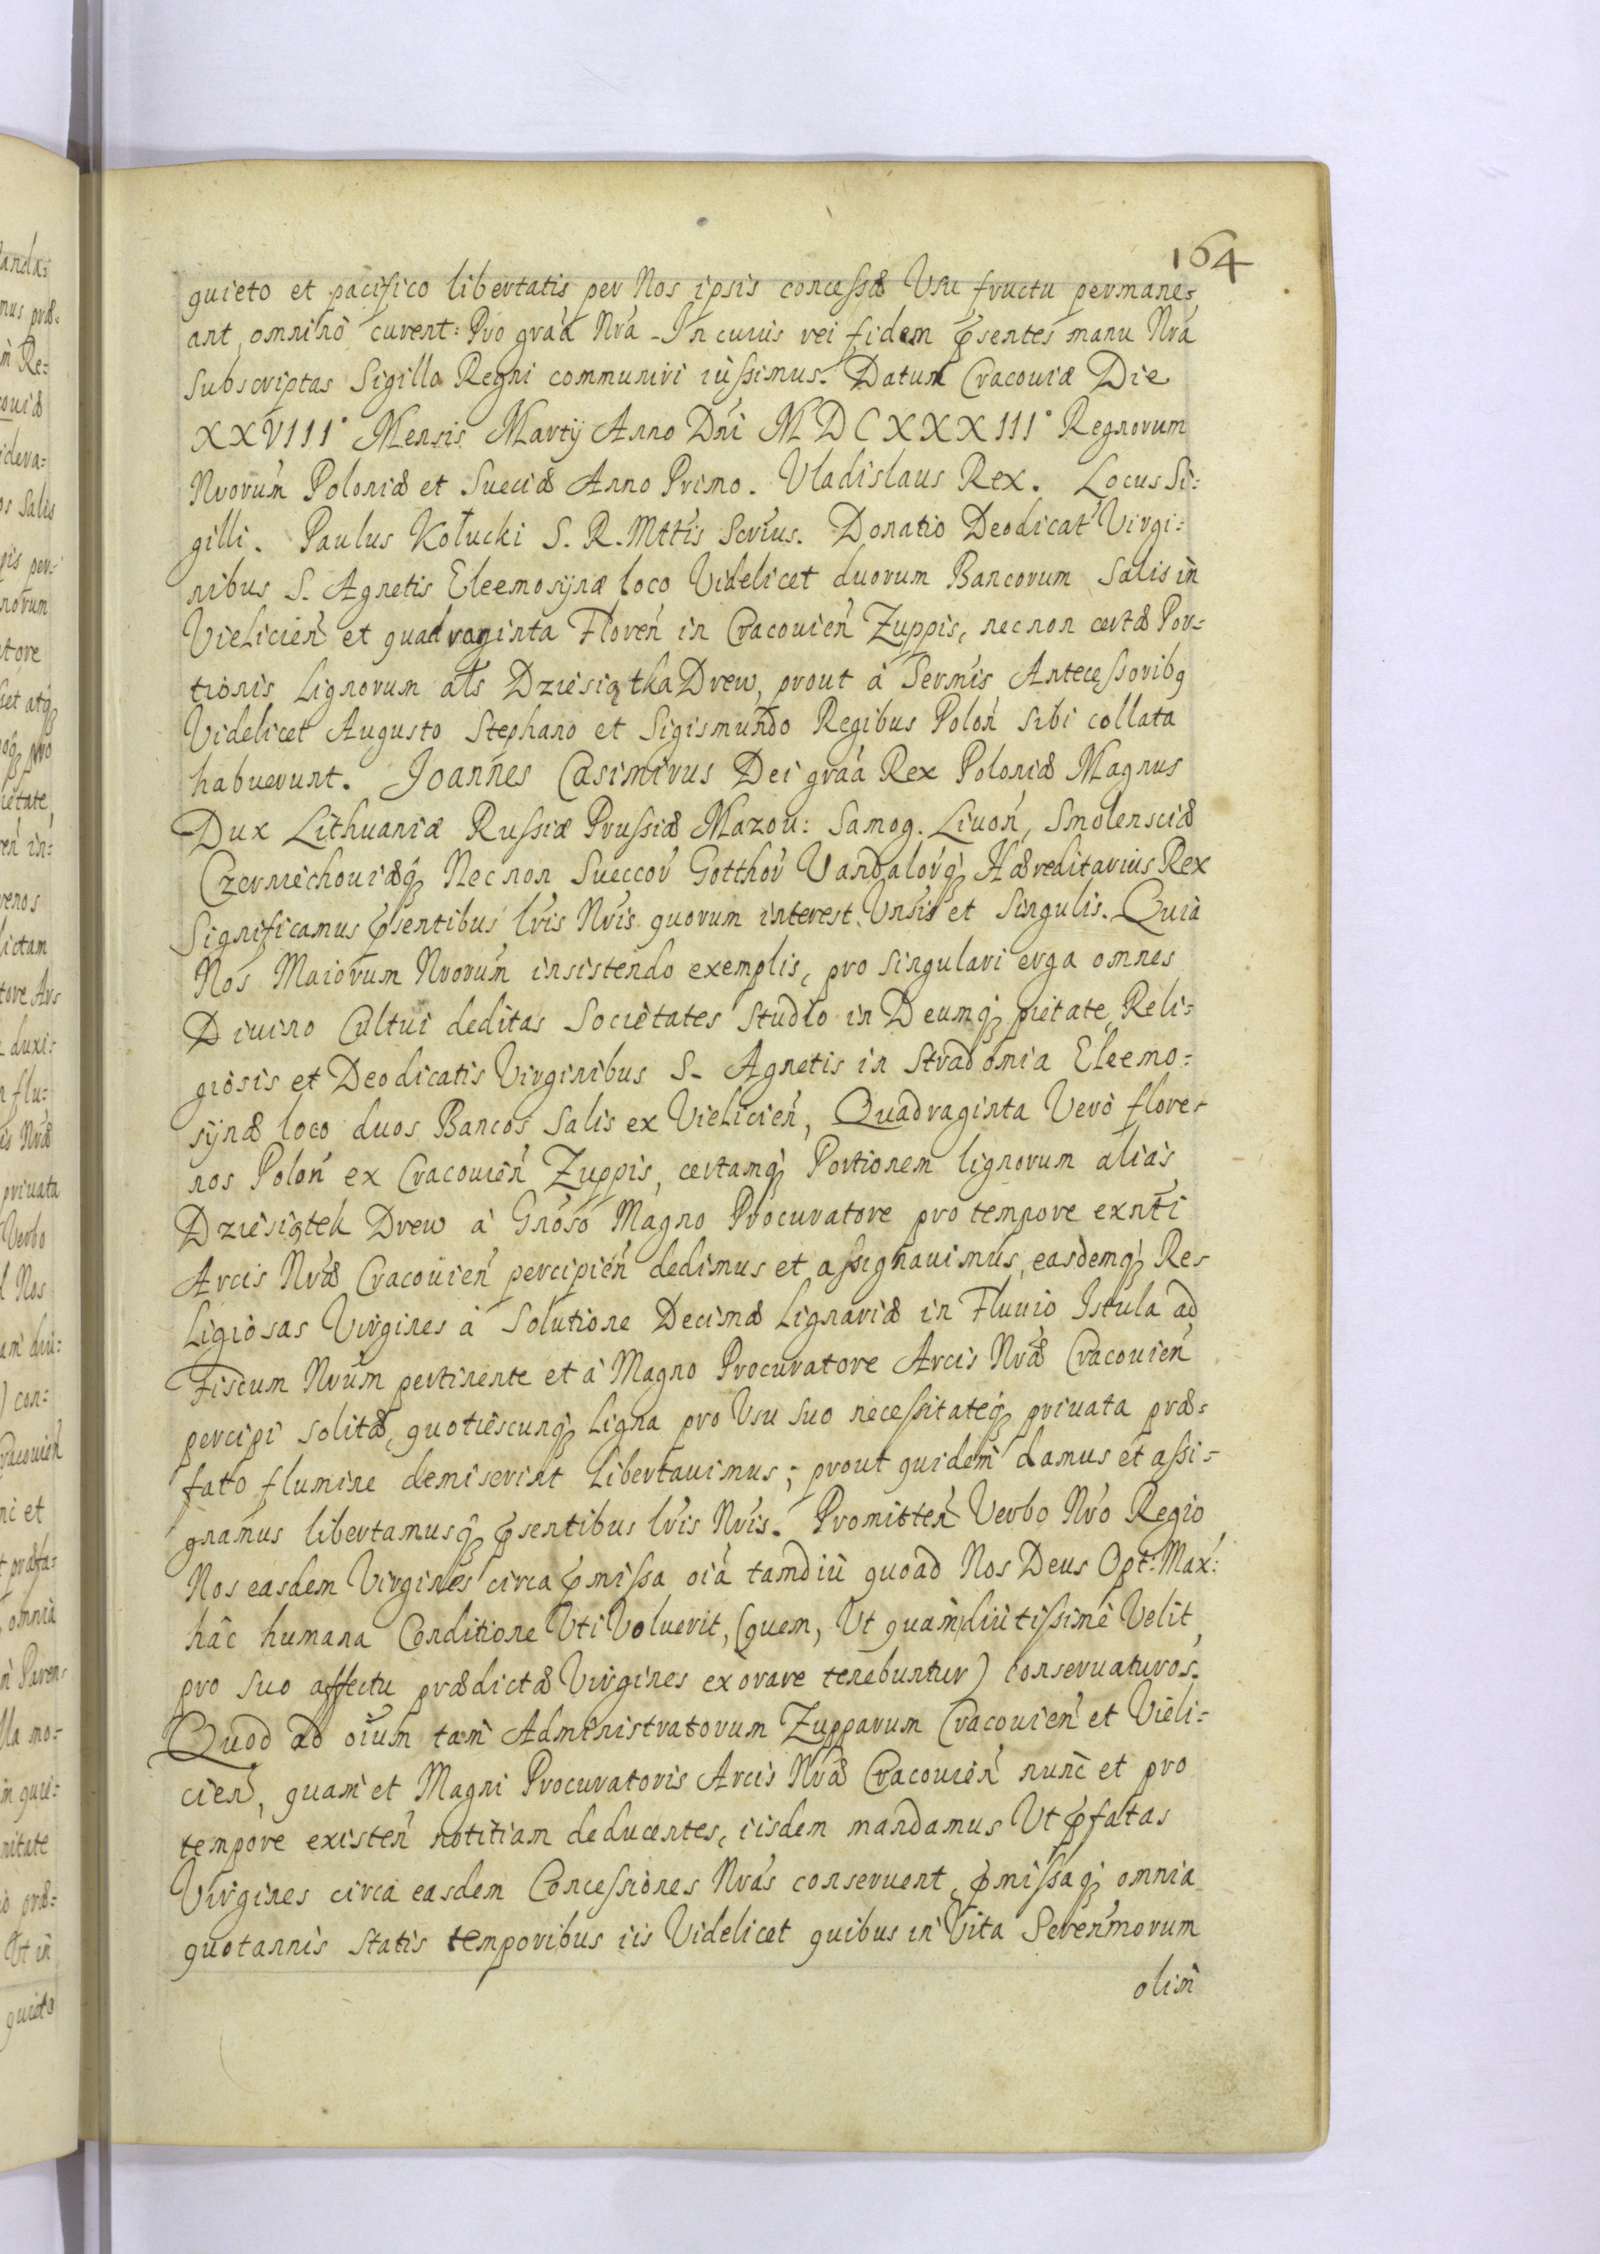 164
quieto et pacifico libertatis per Nos ipsis concessæ Usu fructu permane=
ant, omninò curent: Pro graã Nrã - In cuius rei fidem p̃sentes manu Nrã
Subscriptas Sigillo Regni communiri iussimus. Datum Cracouiæ Die
XXVIII° Mensis Martij Anno Dñi MDCXXXIII° Regnorum
Nrorum̃ Poloniæ et Sueciæ Anno Primo. Vladislaus Rex. Locus Si=
gilli. Paulus Kołucki S. R. Mttis Scrius. Donatio Deodicat̃ Virgi=
nibus S. Agnetis Eleemosynæ loco Videlicet duorum Bancorum Salis in
Vielicień et quadraginta Floreń in Cracouień Zuppis, nec non certæ Por=
tionis Lignorum als Dziesiątka Drew, prout à Sermis Antecessoribq
Videlicet Augusto Stephano et Sigismundo Regibus Poloń Sibi collata
habuerunt. Joannes Casimirus Dei graã Rex Poloniæ Magnus
Dux Lithuaniæ Russiæ Prussiæ Mazou: Samog. Liuoń, Smolensciæ
Czerniechouiæq̃ Nec non Sueccor̃ Gotthor̃ Vandalorq̃ Hæreditarius Rex
Significamus p̃sentibus lr̃is Nr̃is quorum interest Vnsis et Singulis. Quia
Nos Maiorum Nrorum̃ insistendo exemplis, pro singulari erga omnes
Diuino Cultui deditas Societates Studio in Deumq̃ pietate, Reli=
giosis et Deodicatis Virginibus S. Agnetis in Stradomia Eleemo=
synæ loco duos Bancos Salis ex Vielicień, Quadraginta Verò flore=
nos Poloń ex Cracouień Zuppis, certamq̃ Portionem lignorum aliàs
Dziesiątek Drew à Gnoso Magno Procuratore pro tempore exnti
Arcis Nræ Cracouień percipień dedimus et assignauimus, easdemq̃ Re=
ligiosas Virgines à Solutione Decimæ Lignariæ in Fluuio Istula ad
Fiscum Nrũm pertinente et à Magno Procuratore Arcis Nræ Cracouień
percipi solitæ, quotiescunq̃ Ligna pro Vsu suo necessitateq̃ priuata præ=
fato flumine demiserint Libertauimus; prout quidem damus et assi=
gnamus libertamusq̃ p̃sentibus lr̃is Nr̃is. Promitteń Verbo Nr̃o Regio
Nos easdem Virgines circa p̃missa oiã tamdiù quoad Nos Deus Opt: Max:
hâc humana Conditione Vti Voluerit, (quem, Vt quàmdiutissimè Velit,
pro suo affectu prædictæ Virgines exorare tenebuntur) conseruaturos.
Quod ad oĩum tam Administratorum Zupparum Cracouień et Vieli=
cień, quam et Magni Procuratoris Arcis Nræ Cracouień nunc et pro
tempore existeń notitiam deducentes, iisdem mandamus Vt p̃fatas
Virgines circa easdem Concessiones Nrãs conseruent, p̃missaq̃ omnia
quotannis statis temporibus iis Videlicet quibus in Vita Sereńmorum
olim